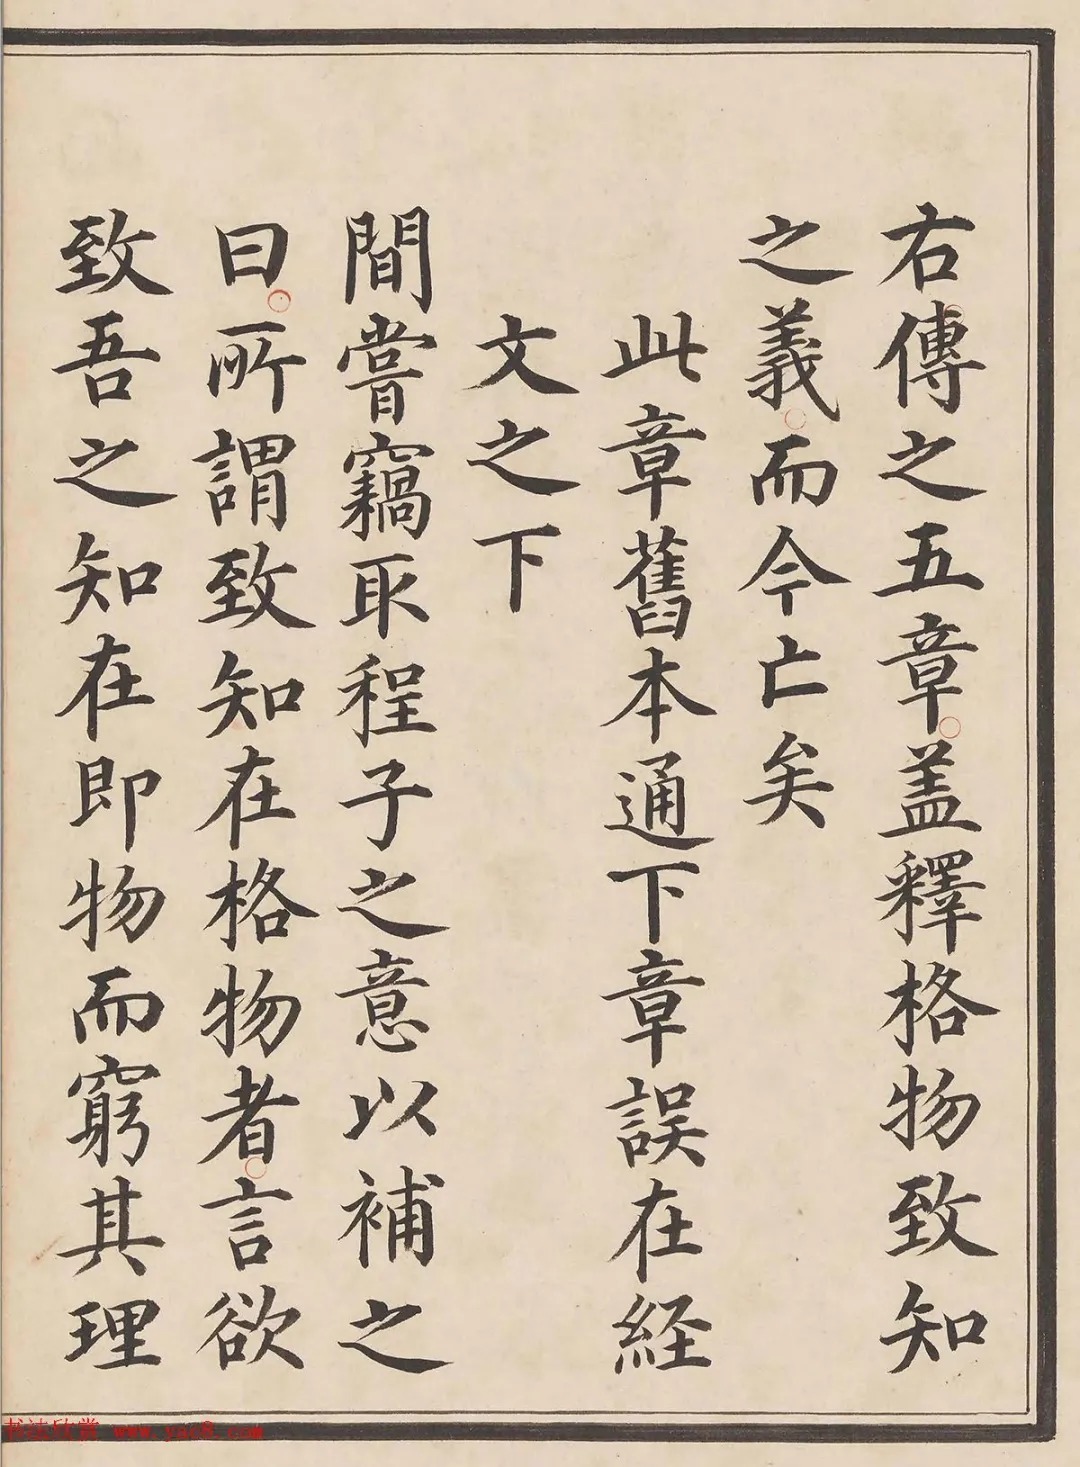 右傳之五章盖釋格物致知
之義而今亡矣
此章舊本通下章誤在経
文之下
間嘗竊取程子之意以補之
曰所謂致知在格物者言欲
致吾之知在即物而窮其理
书法欣赏 www.yac8.com